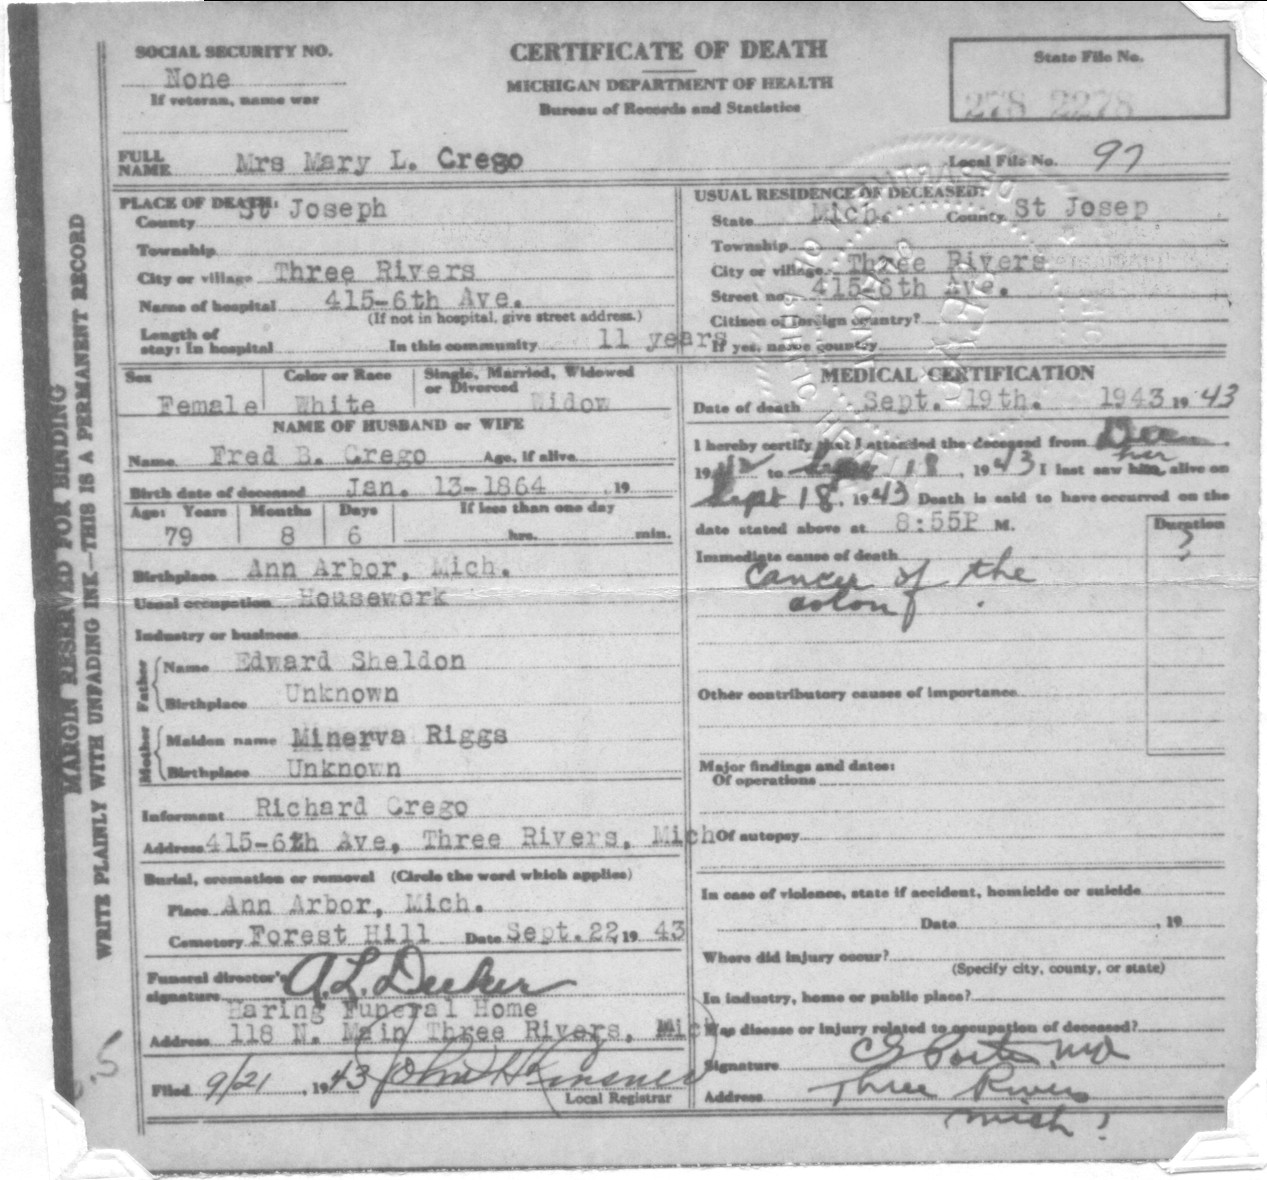 SOCIAL SECURITY NO.
None
If veteran, name war
CERTIFICATE OF DEATH
MICHIGAN DEPARTMENT OF HEALTH
Bureau of Records and Statistics
State File No.
278 2278
FULL NAME Mrs Mary L. Crego
Local File No. 97
PLACE OF DEATH:
County St Joseph
Township
City or village Three Rivers
Name of hospital 415-6th Ave.
(If not in hospital, give street address.)
Length of stay: In hospital In this community 11 years
USUAL RESIDENCE OF DECEASED:
State Mich. County St Josep
Township
City or village Three Rivers
Street no. 415-6th Ave.
Citizen of foreign country?
If yes, name country
Sex Female
Color or Race White
Single, Married, Widowed or Divorced Widow
NAME OF HUSBAND or WIFE
Name Fred B. Crego Age, if alive
Birth date of deceased Jan. 13-1864 , 19
Age: Years 79 Months 8 Days 6 If less than one day hrs. min.
Birthplace Ann Arbor, Mich.
Usual occupation Housework
Industry or business
Father
Name Edward Sheldon
Birthplace Unknown
Mother
Maiden name Minerva Riggs
Birthplace Unknown
Informant Richard Crego
Address 415-6th Ave, Three Rivers, Mich
Burial, cremation or removal (Circle the word which applies)
Place Ann Arbor, Mich.
Cemetery Forest Hill Date Sept. 22, 19 43
Funeral director's signature A.L. Decker
Haring Funeral Home
Address 118 N. Main Three Rivers, Mich
Filed 9/21, 1943 John H
Local Registrar
MEDICAL CERTIFICATION
Date of death Sept. 19th. 1943 19 43
I hereby certify that I attended the deceased from Dec
1942 to Sept 18, 1943 I last saw him her alive on
Sept 18, 1943 Death is said to have occurred on the
date stated above at 8:55P M.
Duration
?
Immediate cause of death
Cancer of the
colon
Other contributory causes of importance
Major findings and dates:
Of operations
Of autopsy
In case of violence, state if accident, homicide or suicide
Date , 19
Where did injury occur?
(Specify city, county, or state)
In industry, home or public place?
Was disease or injury related to occupation of deceased?
Signature MD
Address Three Rivers
Mich.
MARGIN RESERVED FOR BINDING
WRITE PLAINLY WITH UNFADING INK—THIS IS A PERMANENT RECORD